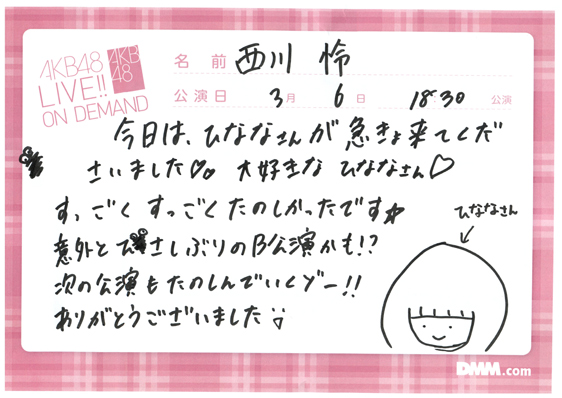 AKB48
LIVE!!
ON DEMAND
AKB
48
名 前 西川 怜
公演日 3月 6日 18:30 公演
今日は、ひななさんが急きょ来てくだ
さいました♡♡ 大好きな ひななさん♡
すっごくすっごくたのしかったです☆
意外とひさしぶりのB公演かも!?
次の公演もたのしんでいくゾー!!
ありがとうございました
ひななさん
DMM.com